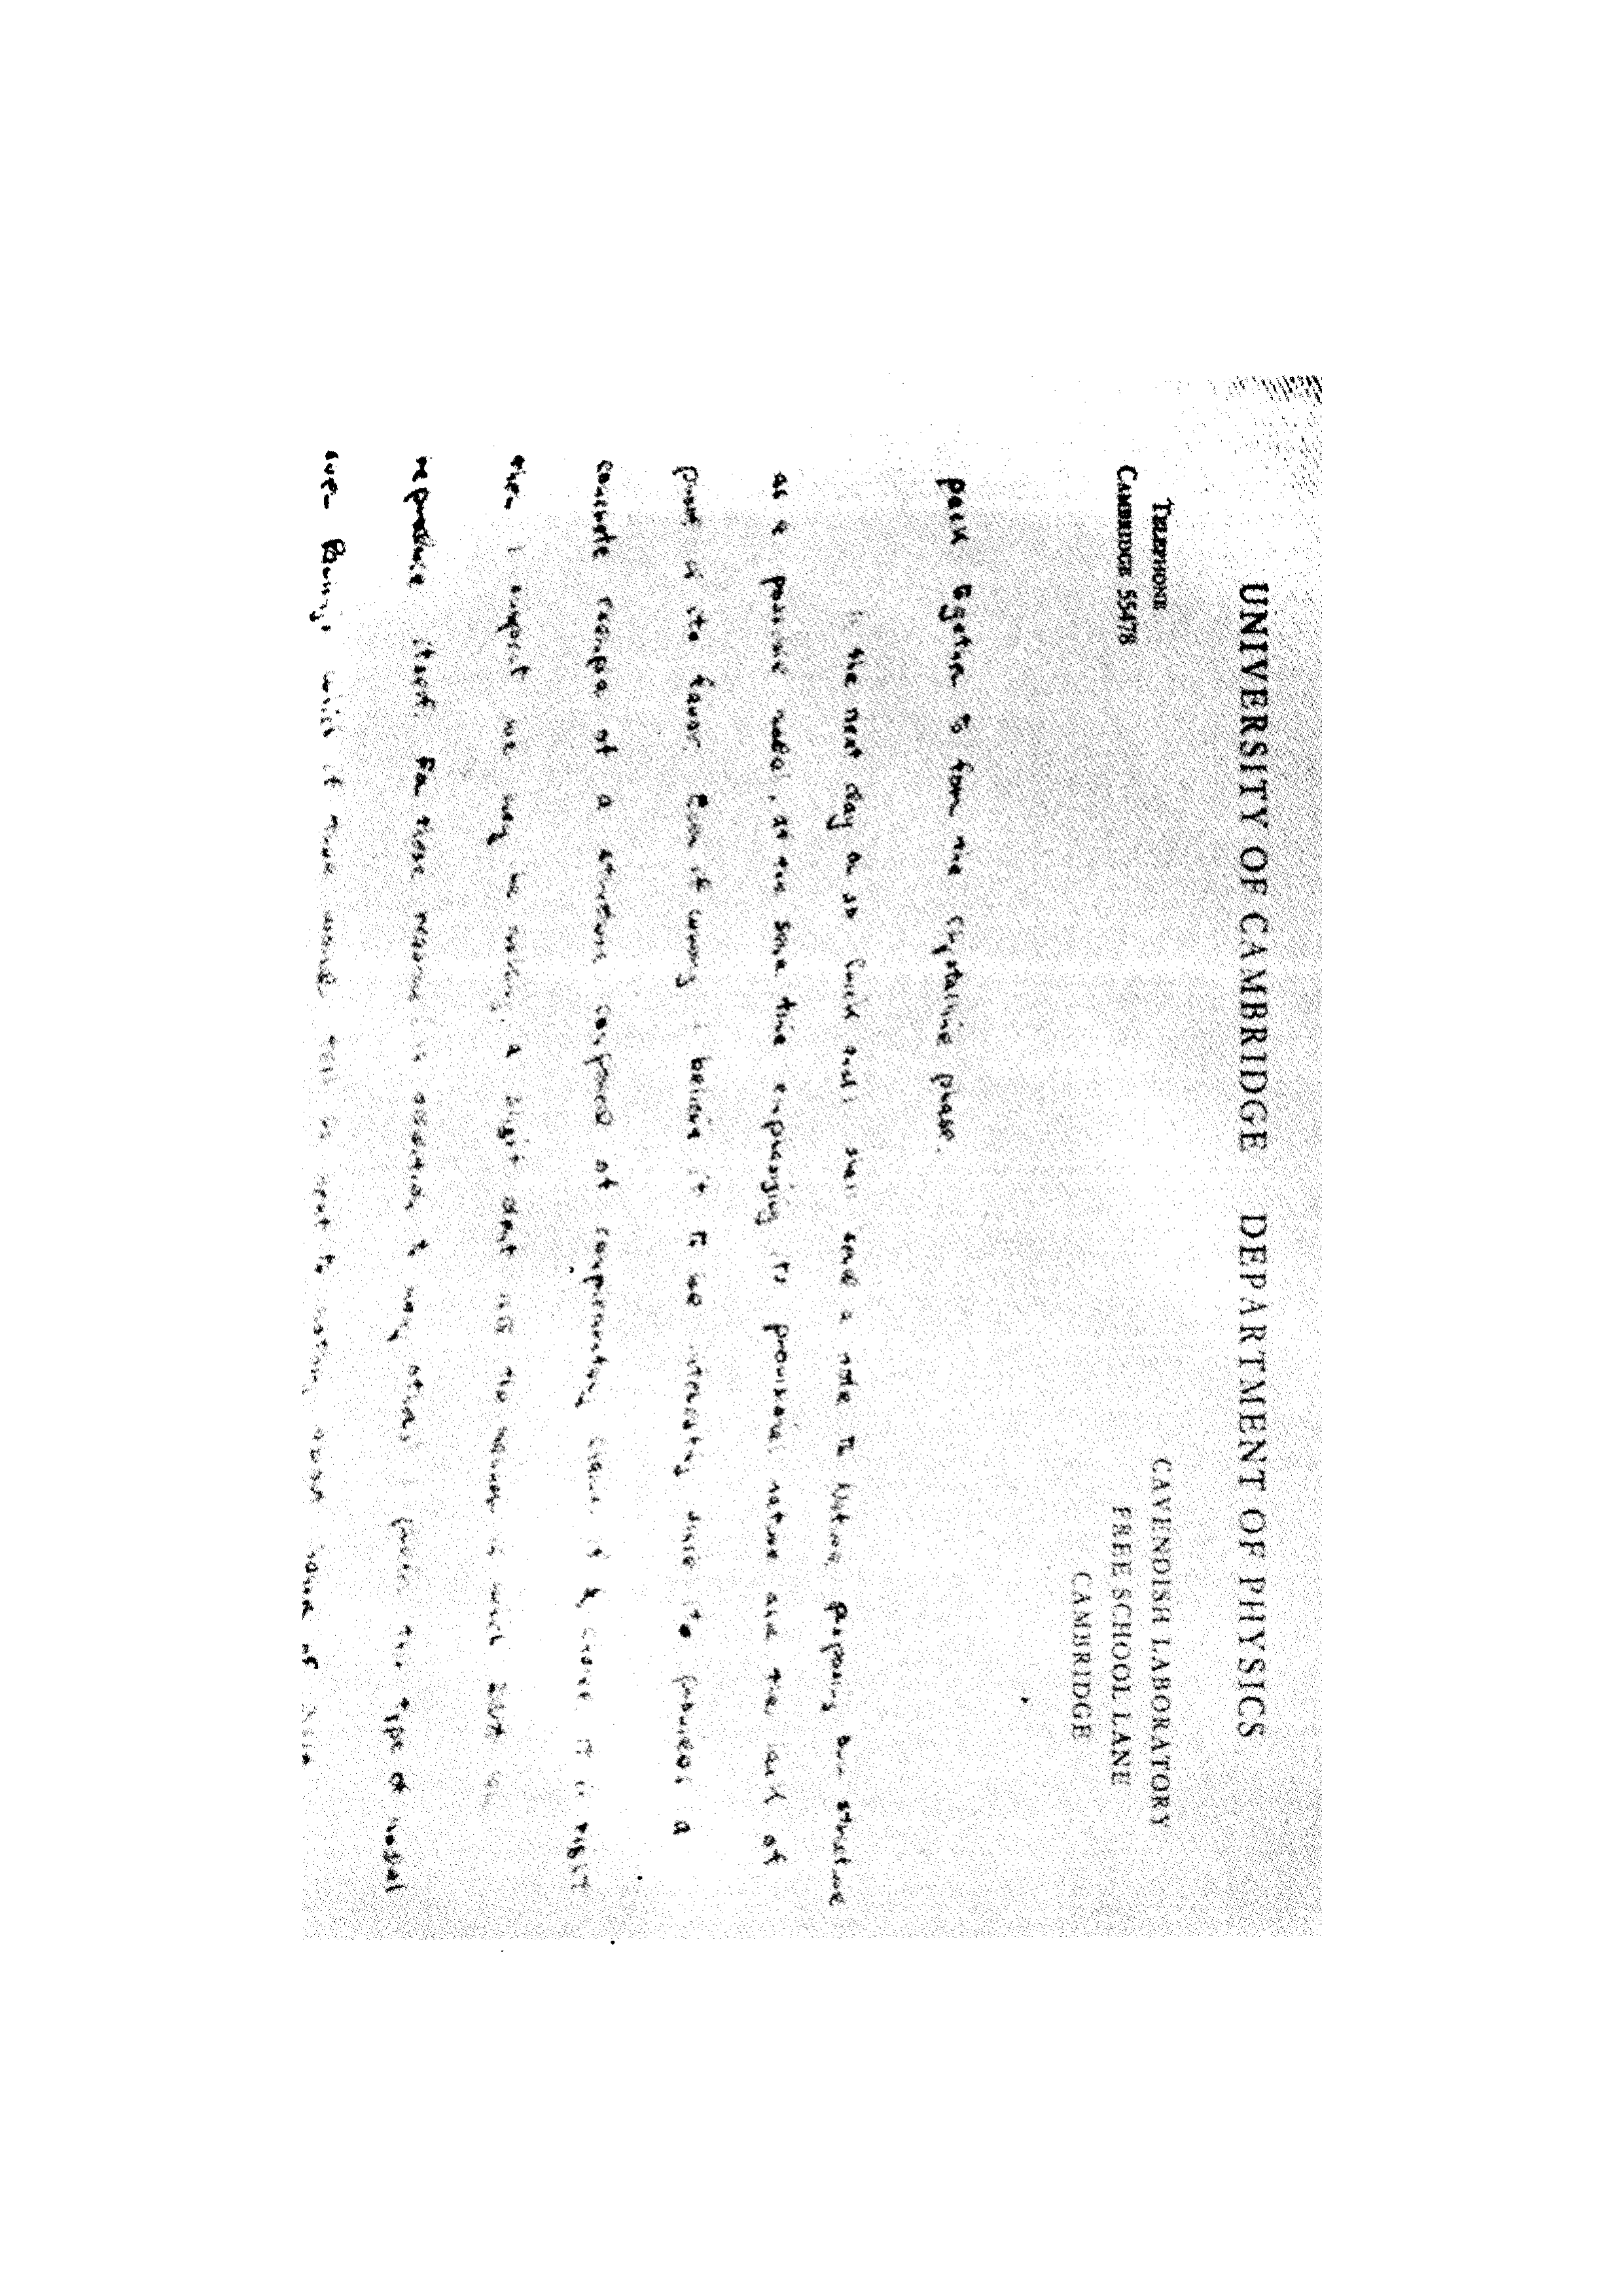 UNIVERSITY OF CAMBRIDGE DEPARTMENT OF PHYSICS
TELEPHONE
CAMBRIDGE 55478
CAVENDISH LABORATORY
FREE SCHOOL LANE
CAMBRIDGE
pack together to form the crystalline phase.
In the next day or so Crick and I shall send a note to Nature proposing our structure
as a possible model, at the same time emphasizing its provisional nature and the lack of
proof in its favor. Even if wrong I believe it to be interesting since it provides a
concrete example of a structure composed of complementary chains. If by chance, it is right
then I suspect we may be making a slight dent into the manner in which DNA can
reproduce itself. For these reasons (in addition to many others) I prefer this type of model
over Pauling's which if true would tell us next to nothing about manner of DNA